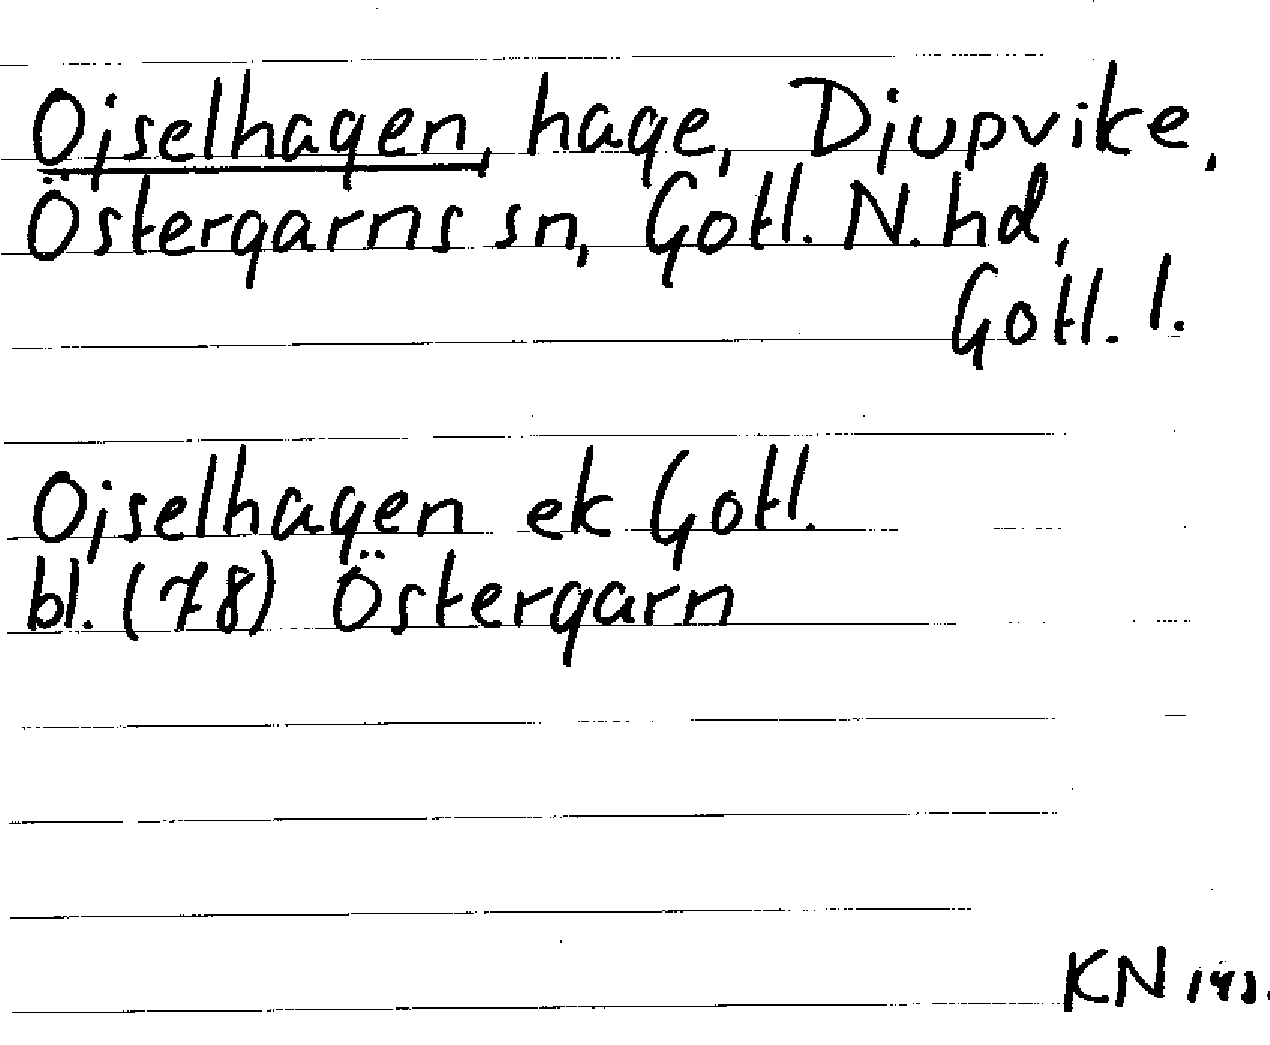 Ojselhagen, hage, Djupvike,
Östergarns sn, Gotl. N. hd,
Gotl. l.
Ojselhagen ek Gotl.
bl. (78) Östergarn
KN